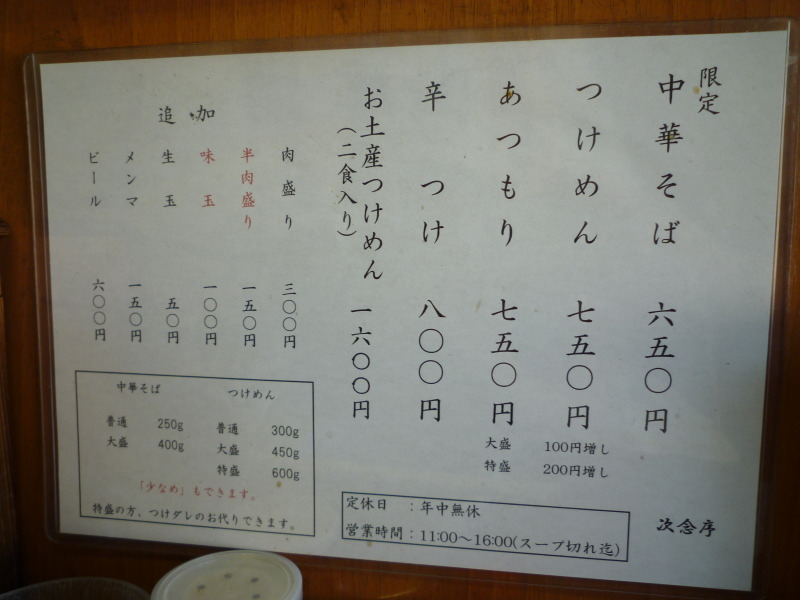 限定
中華そば 六五〇円
つけめん 七五〇円
あつもり 七五〇円
大盛 100円増し
特盛 200円増し
辛つけ 八〇〇円
お土産つけめん 一六〇〇円
(二食入り)
追加
肉盛り 三〇〇円
半肉盛り 一五〇円
味玉 一〇〇円
生玉 五〇円
メンマ 一五〇円
ビール 六〇〇円
中華そば
普通 250g
大盛 400g
つけめん
普通 300g
大盛 450g
特盛 600g
「少なめ」もできます。
特盛の方、つけダレのお代りできます。
定休日 :年中無休
営業時間:11:00〜16:00(スープ切れ迄)
次念序